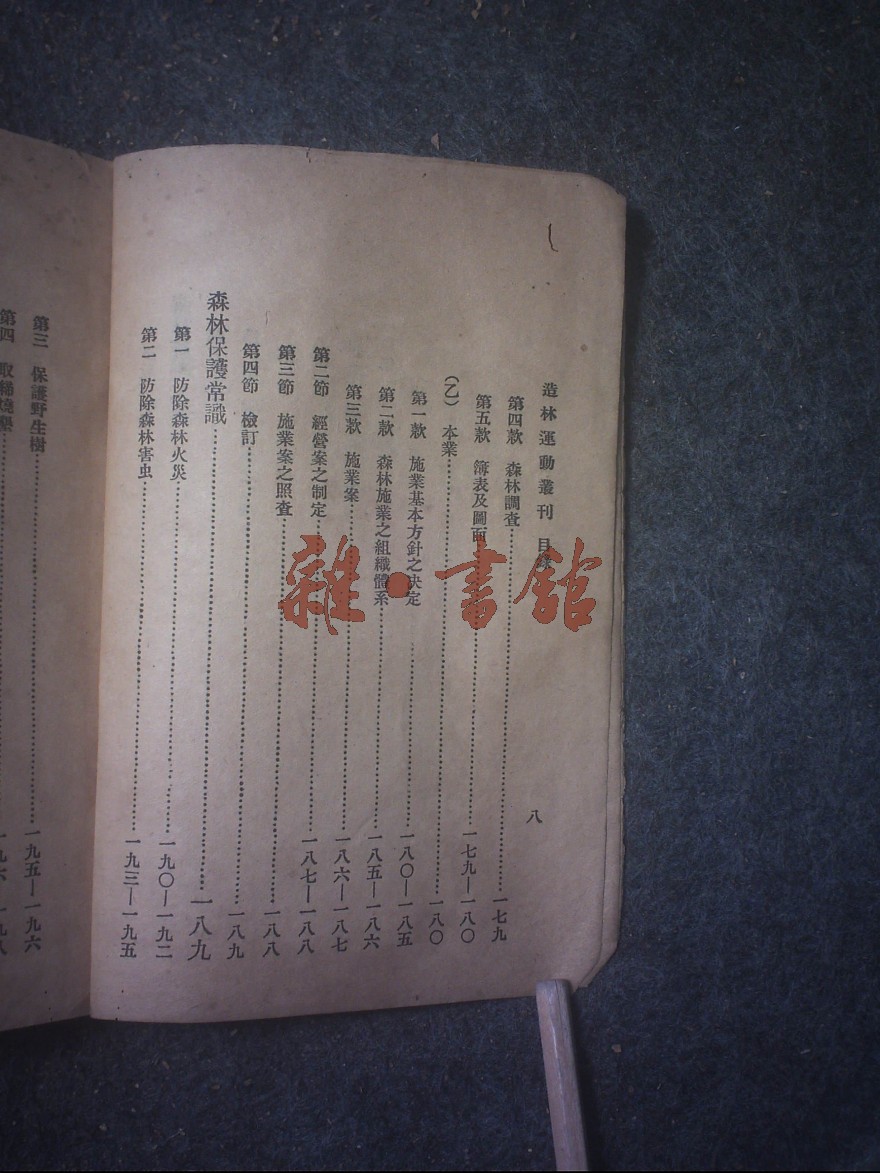 造林運動叢刊 目錄 八
第四款 森林調查……一七九
第五款 簿表及圖面……一七九—一八〇
（乙） 本業……一八〇
第一款 施業基本方針之決定……一八〇—一八五
第二款 森林施業之組織體系……一八五—一八六
第三款 施業案……一八六—一八七
第二節 經營案之制定……一八七—一八八
第三節 施業案之照查……一八八
第四節 檢訂……一八九
森林保護常識……一八九
第一 防除森林火災……一九〇—一九二
第二 防除森林害虫……一九三—一九五
第三 保護野生樹……一九五—一九六
第四 取締燒墾……一九六—一九八
雜·書館